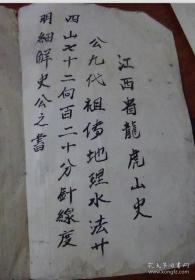 江西省龍虎山史
公九代祖傳地理水法廿
四山七十二向百二十分針線度
明細解史公之書